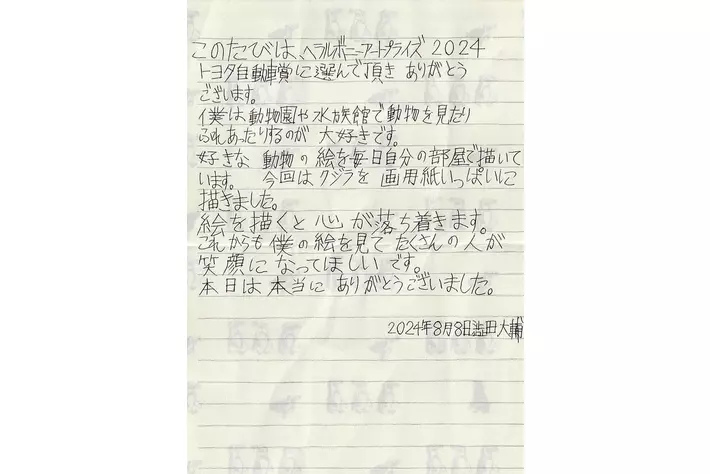 このたびは、ヘラルボニーアートプライズ 2024
トヨタ自動車賞に選んで頂き ありがとう
ございます。
僕は動物園や水族館で動物を見たり
ふれあったりするのが 大好きです。
好きな 動物の絵を毎日自分の部屋で描いて
います。 今回は クジラを 画用紙いっぱいに
描きました。
絵を描くと 心 が落ち着きます。
これからも 僕の絵を見て たくさんの人が
笑顔に なってほしい です。
本日は 本当に ありがとうございました。
2024年8月8日澁田大輔